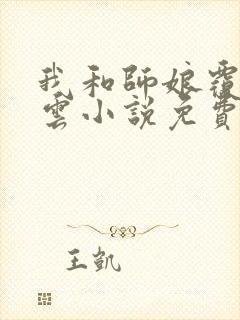 我和師娘覆
雲小說免費
王凱